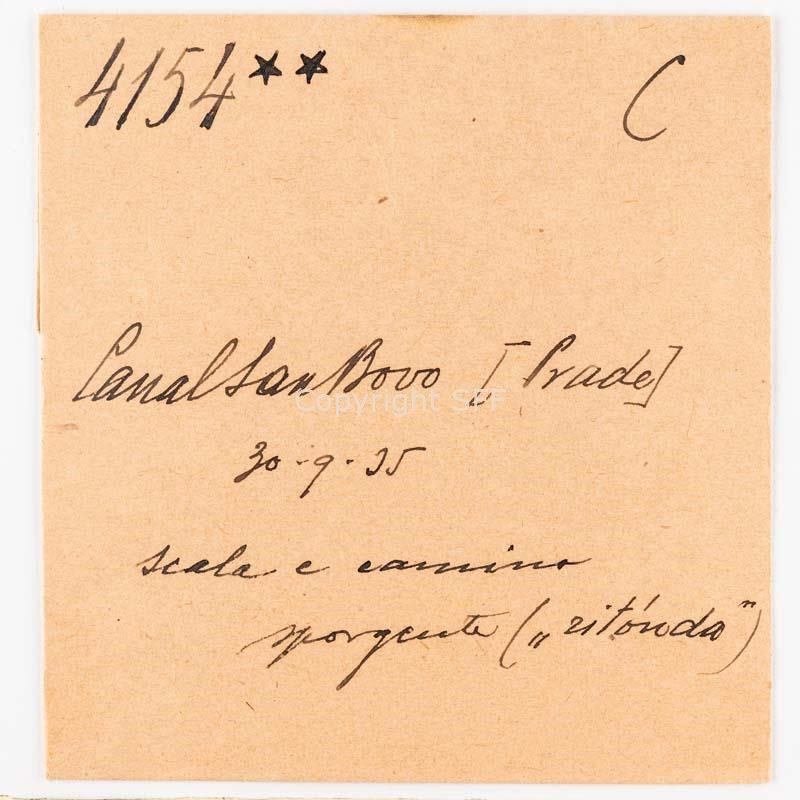 4154** C
Canal San Bovo [Prade]
30-9-35
scala e camino
sporgente („ritónda")
Copyright SFF